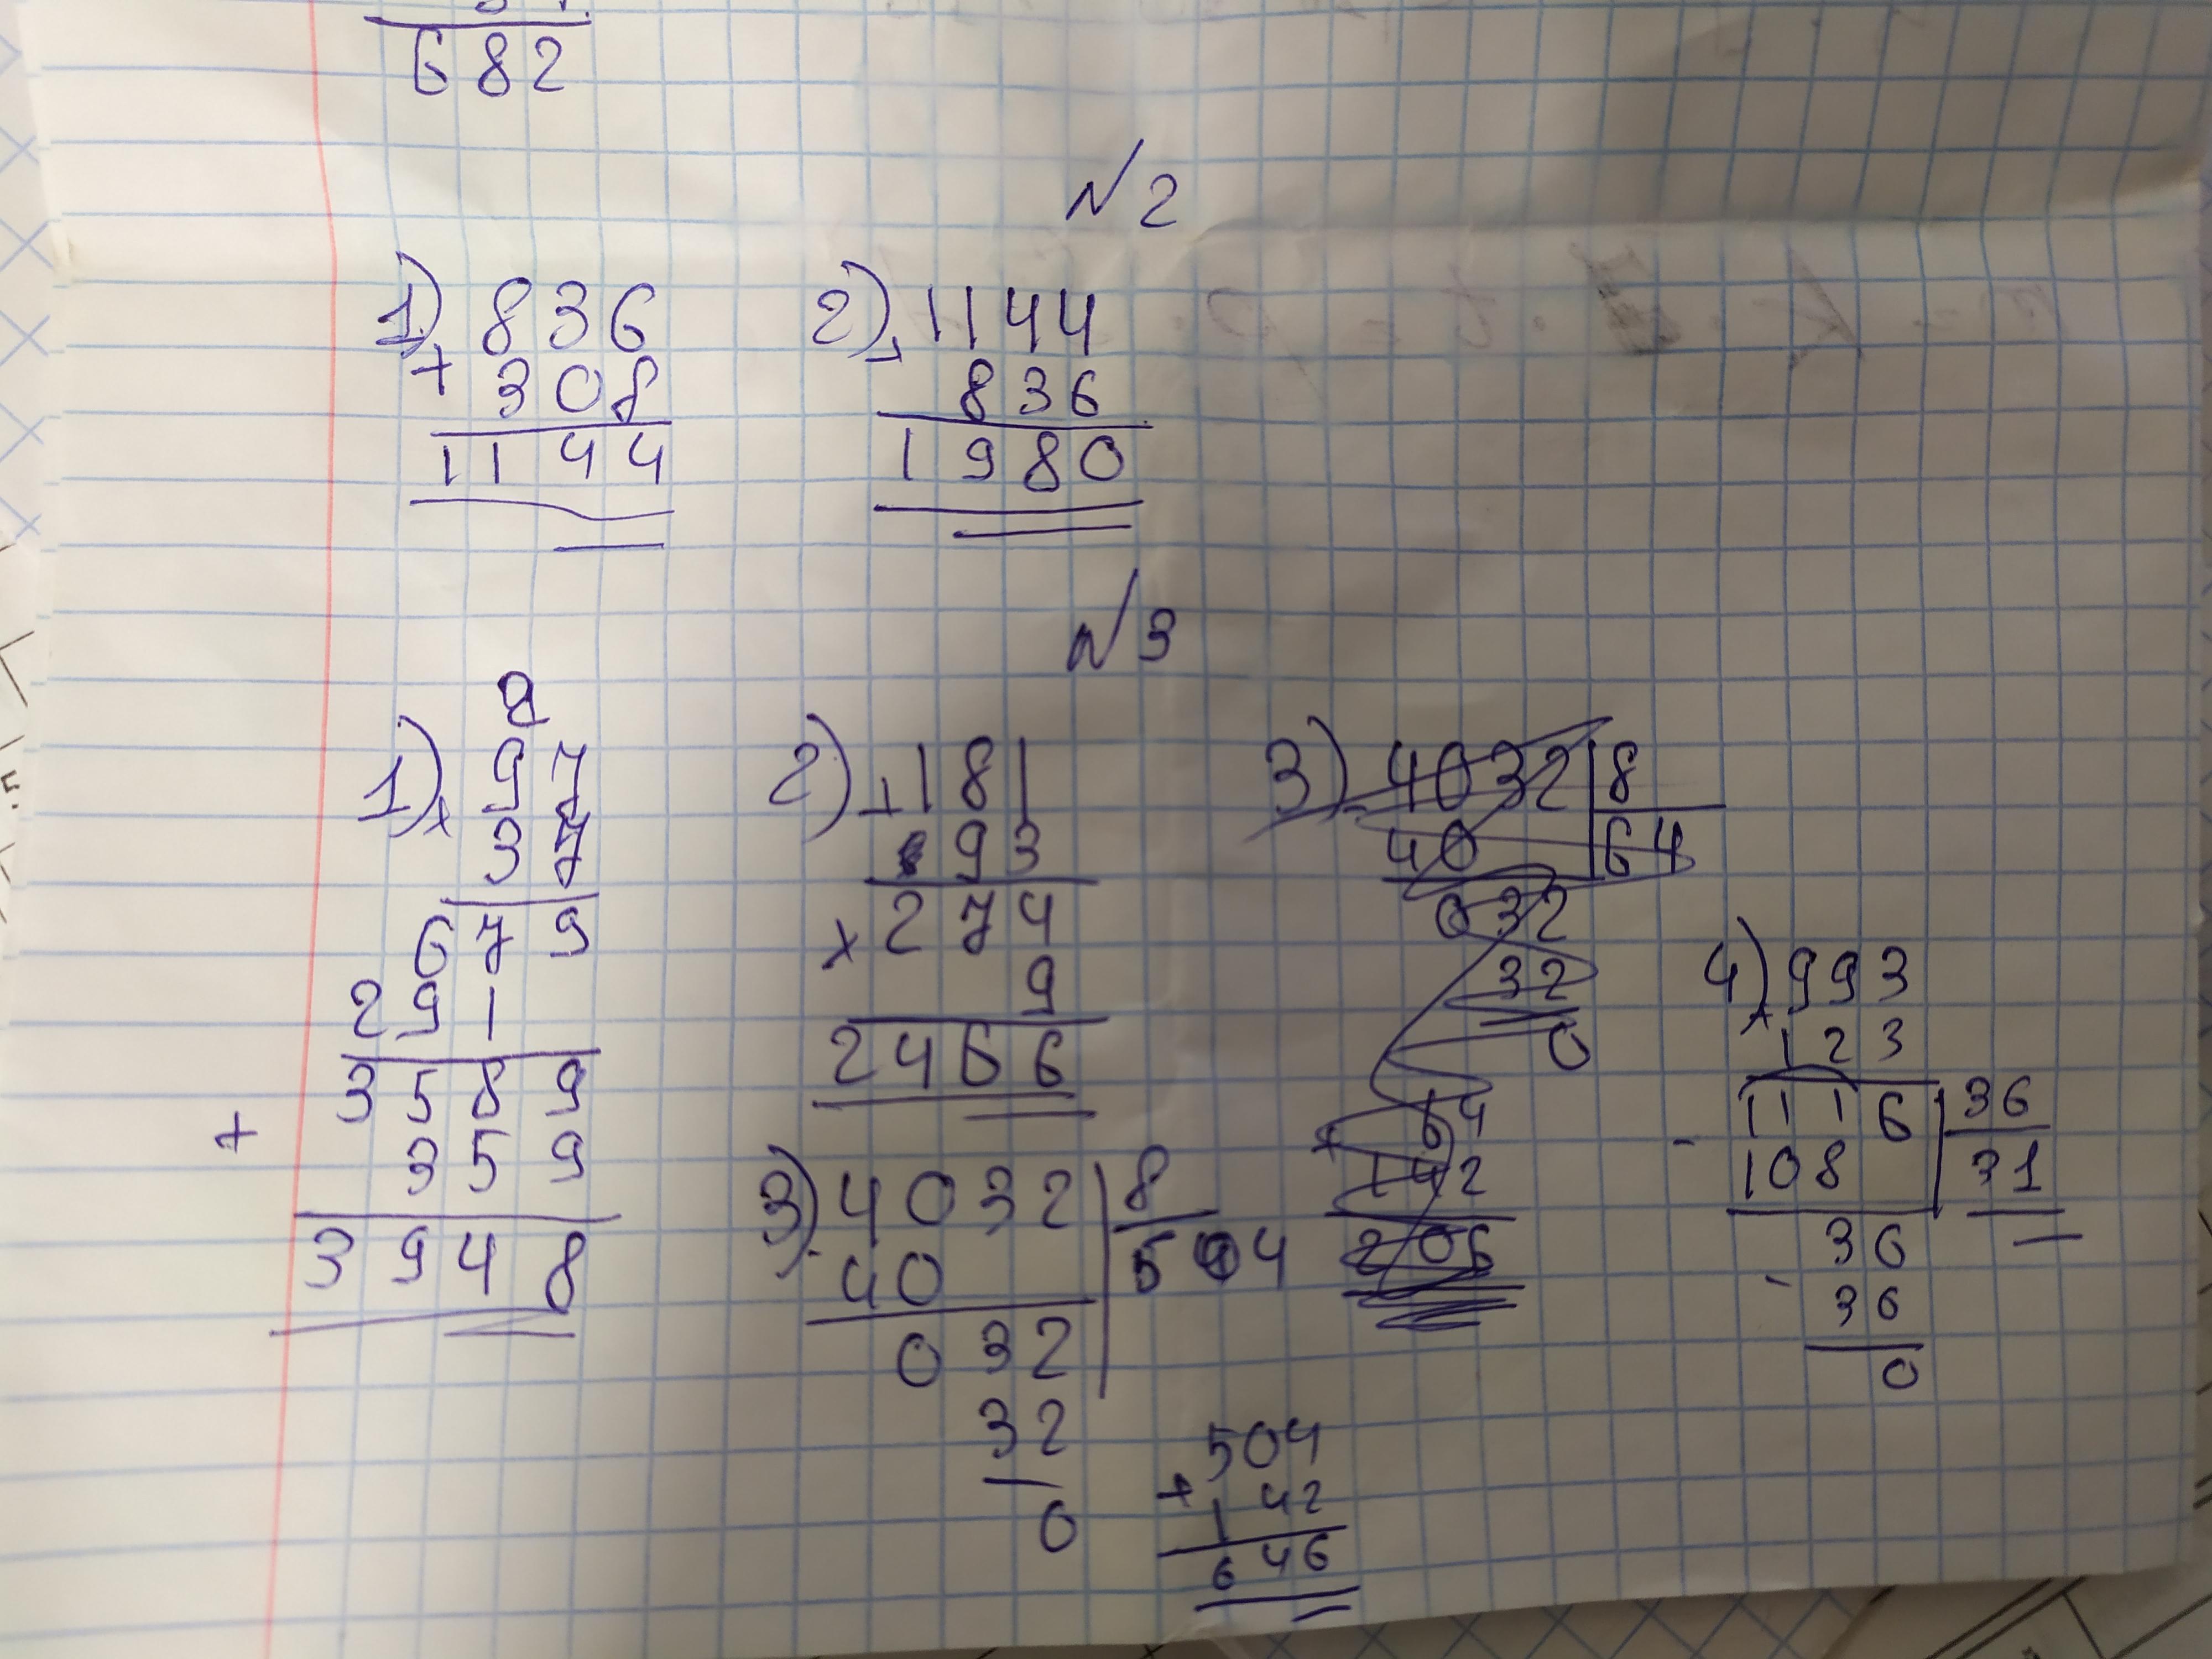 682
№2
1) 836
+ 308
1144
2) 1144
+ 836
1980
№3
8
2
1) 97
x 37
679
291
3589
+ 359
3948
2) +181
93
274
x 9
2466
3) 4032 | 8
40 | 64
032
32
0
64
+ 142
206
3) 4032 | 8
- 40 | 504
032
32
0
504
+ 142
646
4) 993
+ 123
1116 | 36
- 108 | 31
36
- 36
0